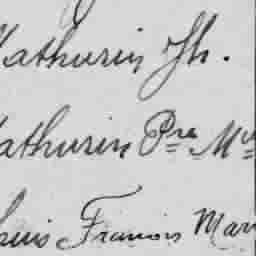 Mathurin Jh.
Mathurin Pre M
Louis Francois Mar